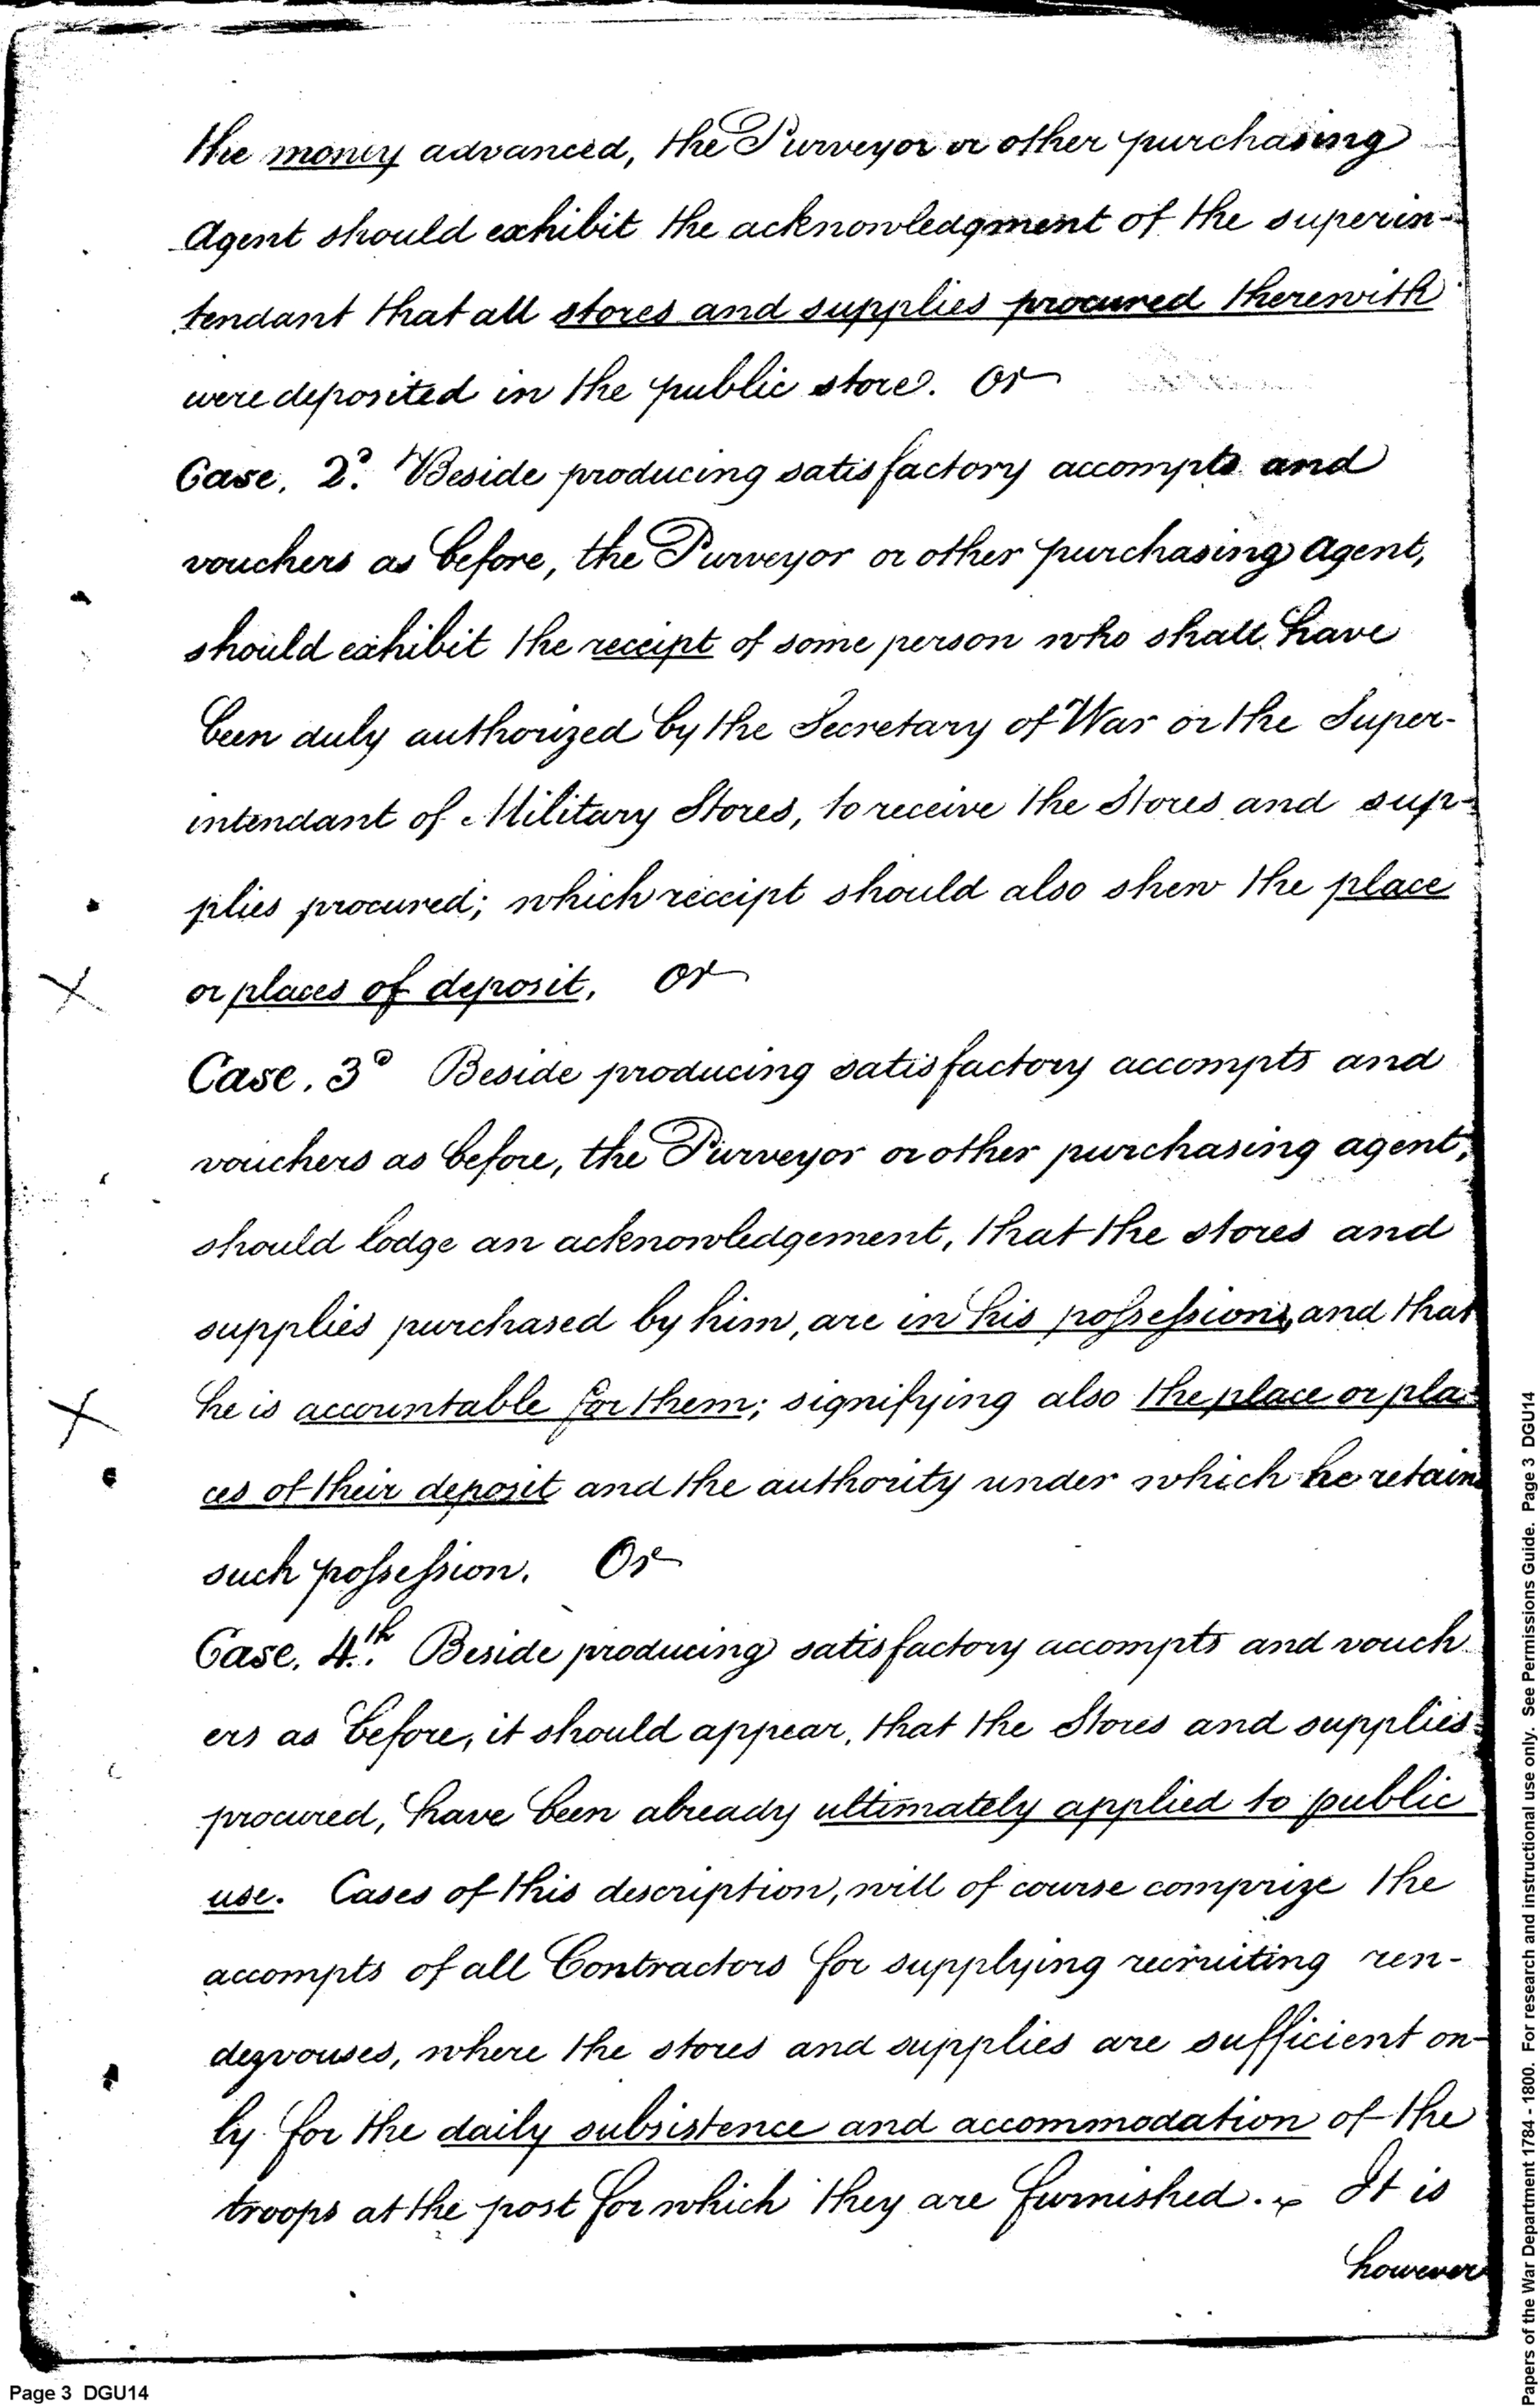 the money advanced, the Purveyor or other purchasing
Agent should exhibit the acknowledgment of the superin-
tendant that all stores and supplies procured therewith
were deposited in the public store. Or
Case. 2º. Beside producing satisfactory accompts and
vouchers as before, the Purveyor or other purchasing agent,
should exhibit the receipt of some person who shall have
been duly authorized by the Secretary of War or the Super-
intendant of Military Stores, to receive the Stores and sup-
plies procured; which receipt should also shew the place
or places of deposit, Or
Case. 3º Beside producing satisfactory accompts and
vouchers as before, the Purveyor or other purchasing agent,
should lodge an acknowledgement, that the stores and
supplies purchased by him, are in his possession, and that
he is accountable for them; signifying also the place or pla-
ces of their deposit and the authority under which he retains
such possession. Or
Case. 4th. Beside producing satisfactory accompts and vouch
ers as before, it should appear, that the Stores and supplies
procured, have been already ultimately applied to public
use. Cases of this description, will of course comprize the
accompts of all Contractors for supplying recruiting ren-
dezvouses, where the stores and supplies are sufficient on-
ly for the daily subsistence and accommodation of the
troops at the post for which they are furnished. It is
however
Page 3 DGU14
Papers of the War Department 1784 - 1800. For research and instructional use only. See Permissions Guide. Page 3 DGU14